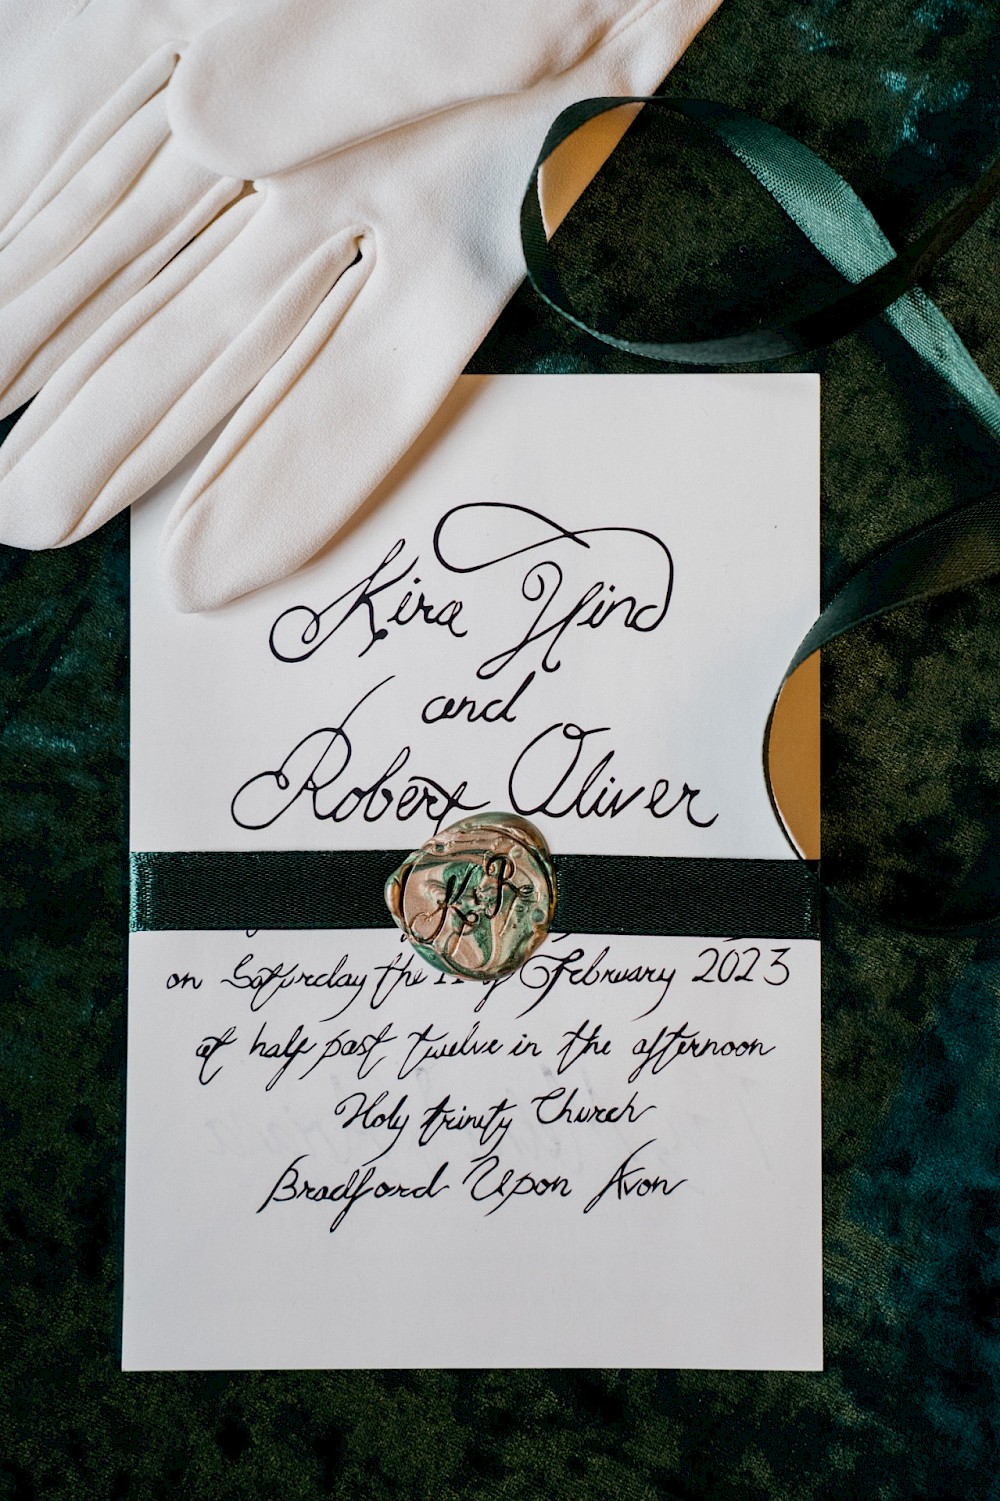 Kira Hind
and
Robert Oliver
K R
on Saturday the February 2023
at half past twelve in the afternoon
Holy trinity Church
Bradford Upon Avon